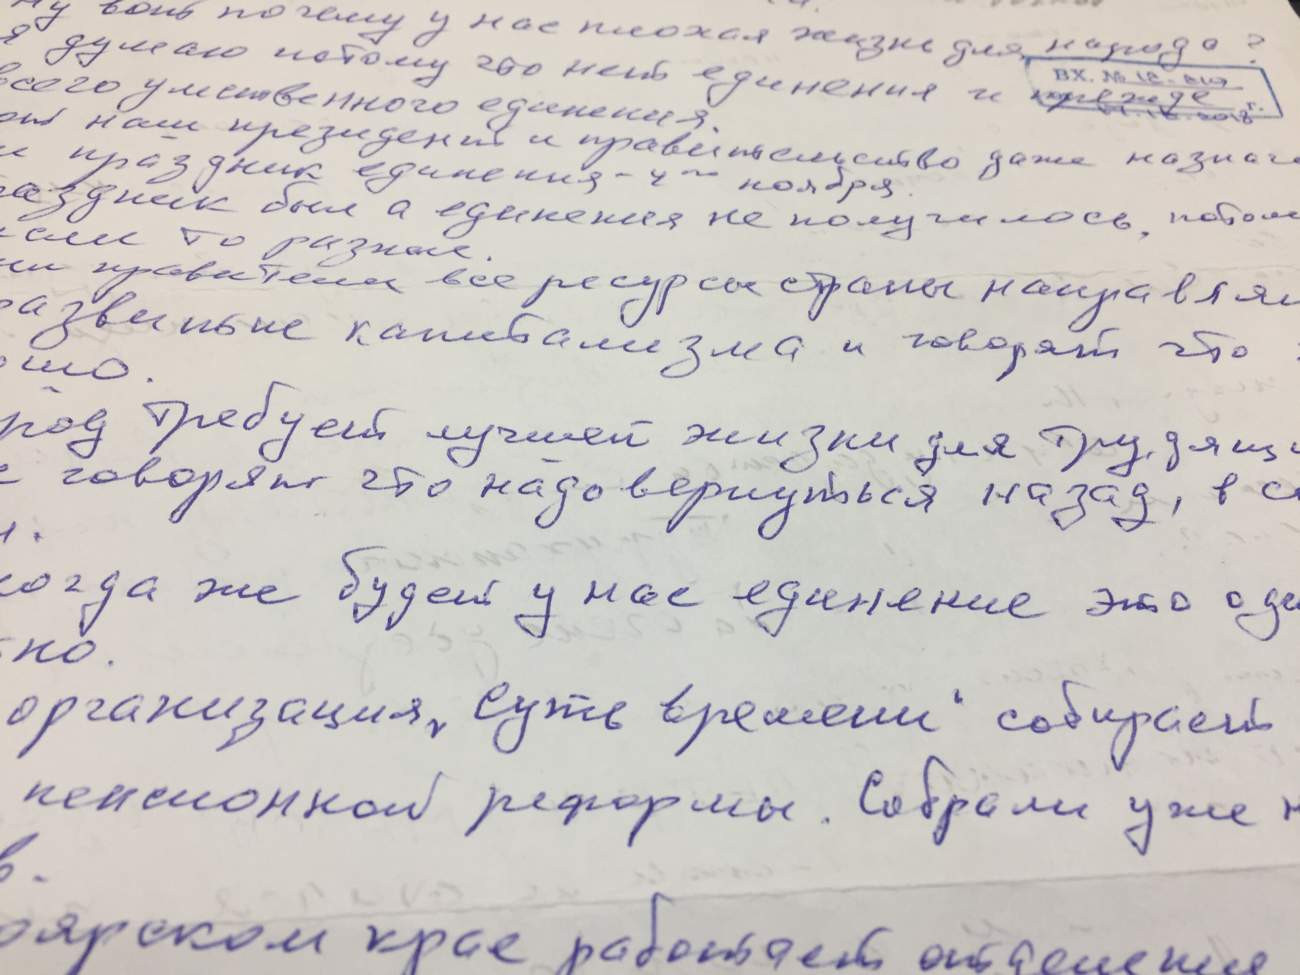 ну вот почему у нас плохая жизнь для народа?
я думаю потому что нет единения и прежде
ВХ. №
всего умственного единения.
наш президент и правительство даже назнач
и праздник единения - 4го ноября.
аздник был а единения не получилось, потом
то разные.
правители все ресурсы страны направлял
развитие капитализма и говорят что
ошо.
род требует лучшей жизни для трудящи
говорят что надо вернуться назад, в с
когда же будет у нас единение это оди
тно.
организация „Суть времени“ собирает
пенсионной реформы. Собрали уже н
в.
оярском крае работает отделения